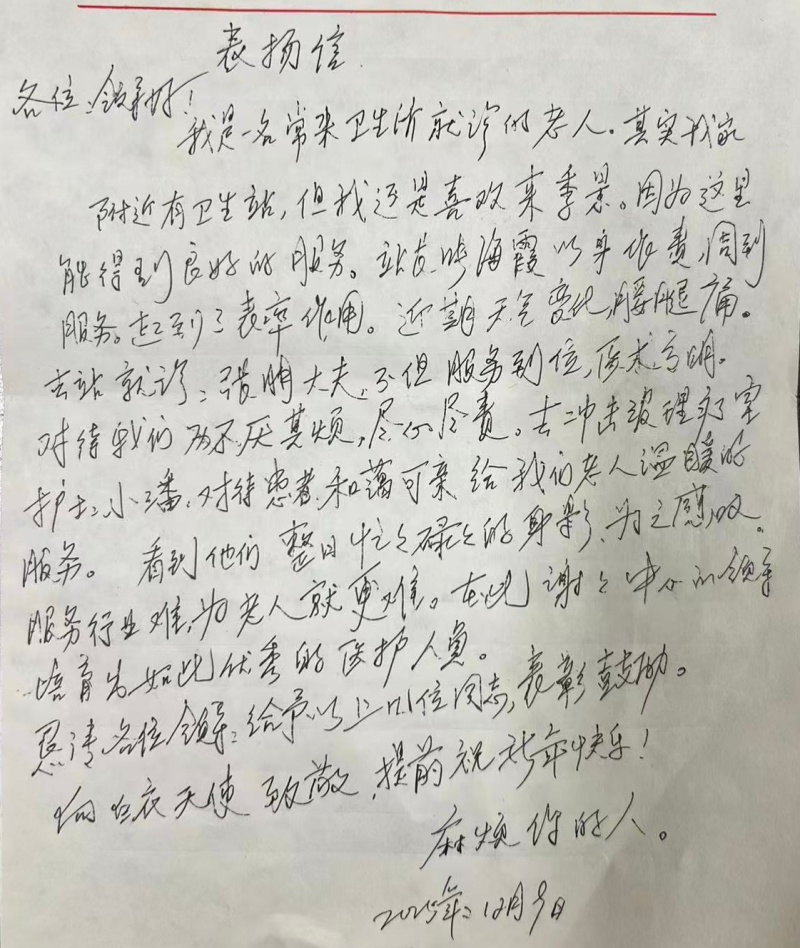 表扬信
各位:领导好!
我是一名常来卫生济就诊的老人。其实我家
附近有卫生站,但我还是喜欢来季景。因为这里
能得到良好的服务。站长 海霞以身作责,周到
服务。起到了表率作用。近期天气变化,腰腿痛。
去站就诊:张朋大夫,不但服务到位,医术高明。
对待我们 不厌其烦,尽心尽责。去冲击波理疗室
护士:小潘,对待患者,和蔼可亲给我们老人温暖的
服务。看到他们整日忙忙碌碌的身影,为之感叹。
服务行业难,为老人就更难。在此谢谢中心的领导
培育出如此优秀的医护人员。
恳请各位领导:给予以上几位同志,表彰鼓励。
向白衣天使致敬,提前祝新年快乐!
麻烦你的人。
2025年:12月9日